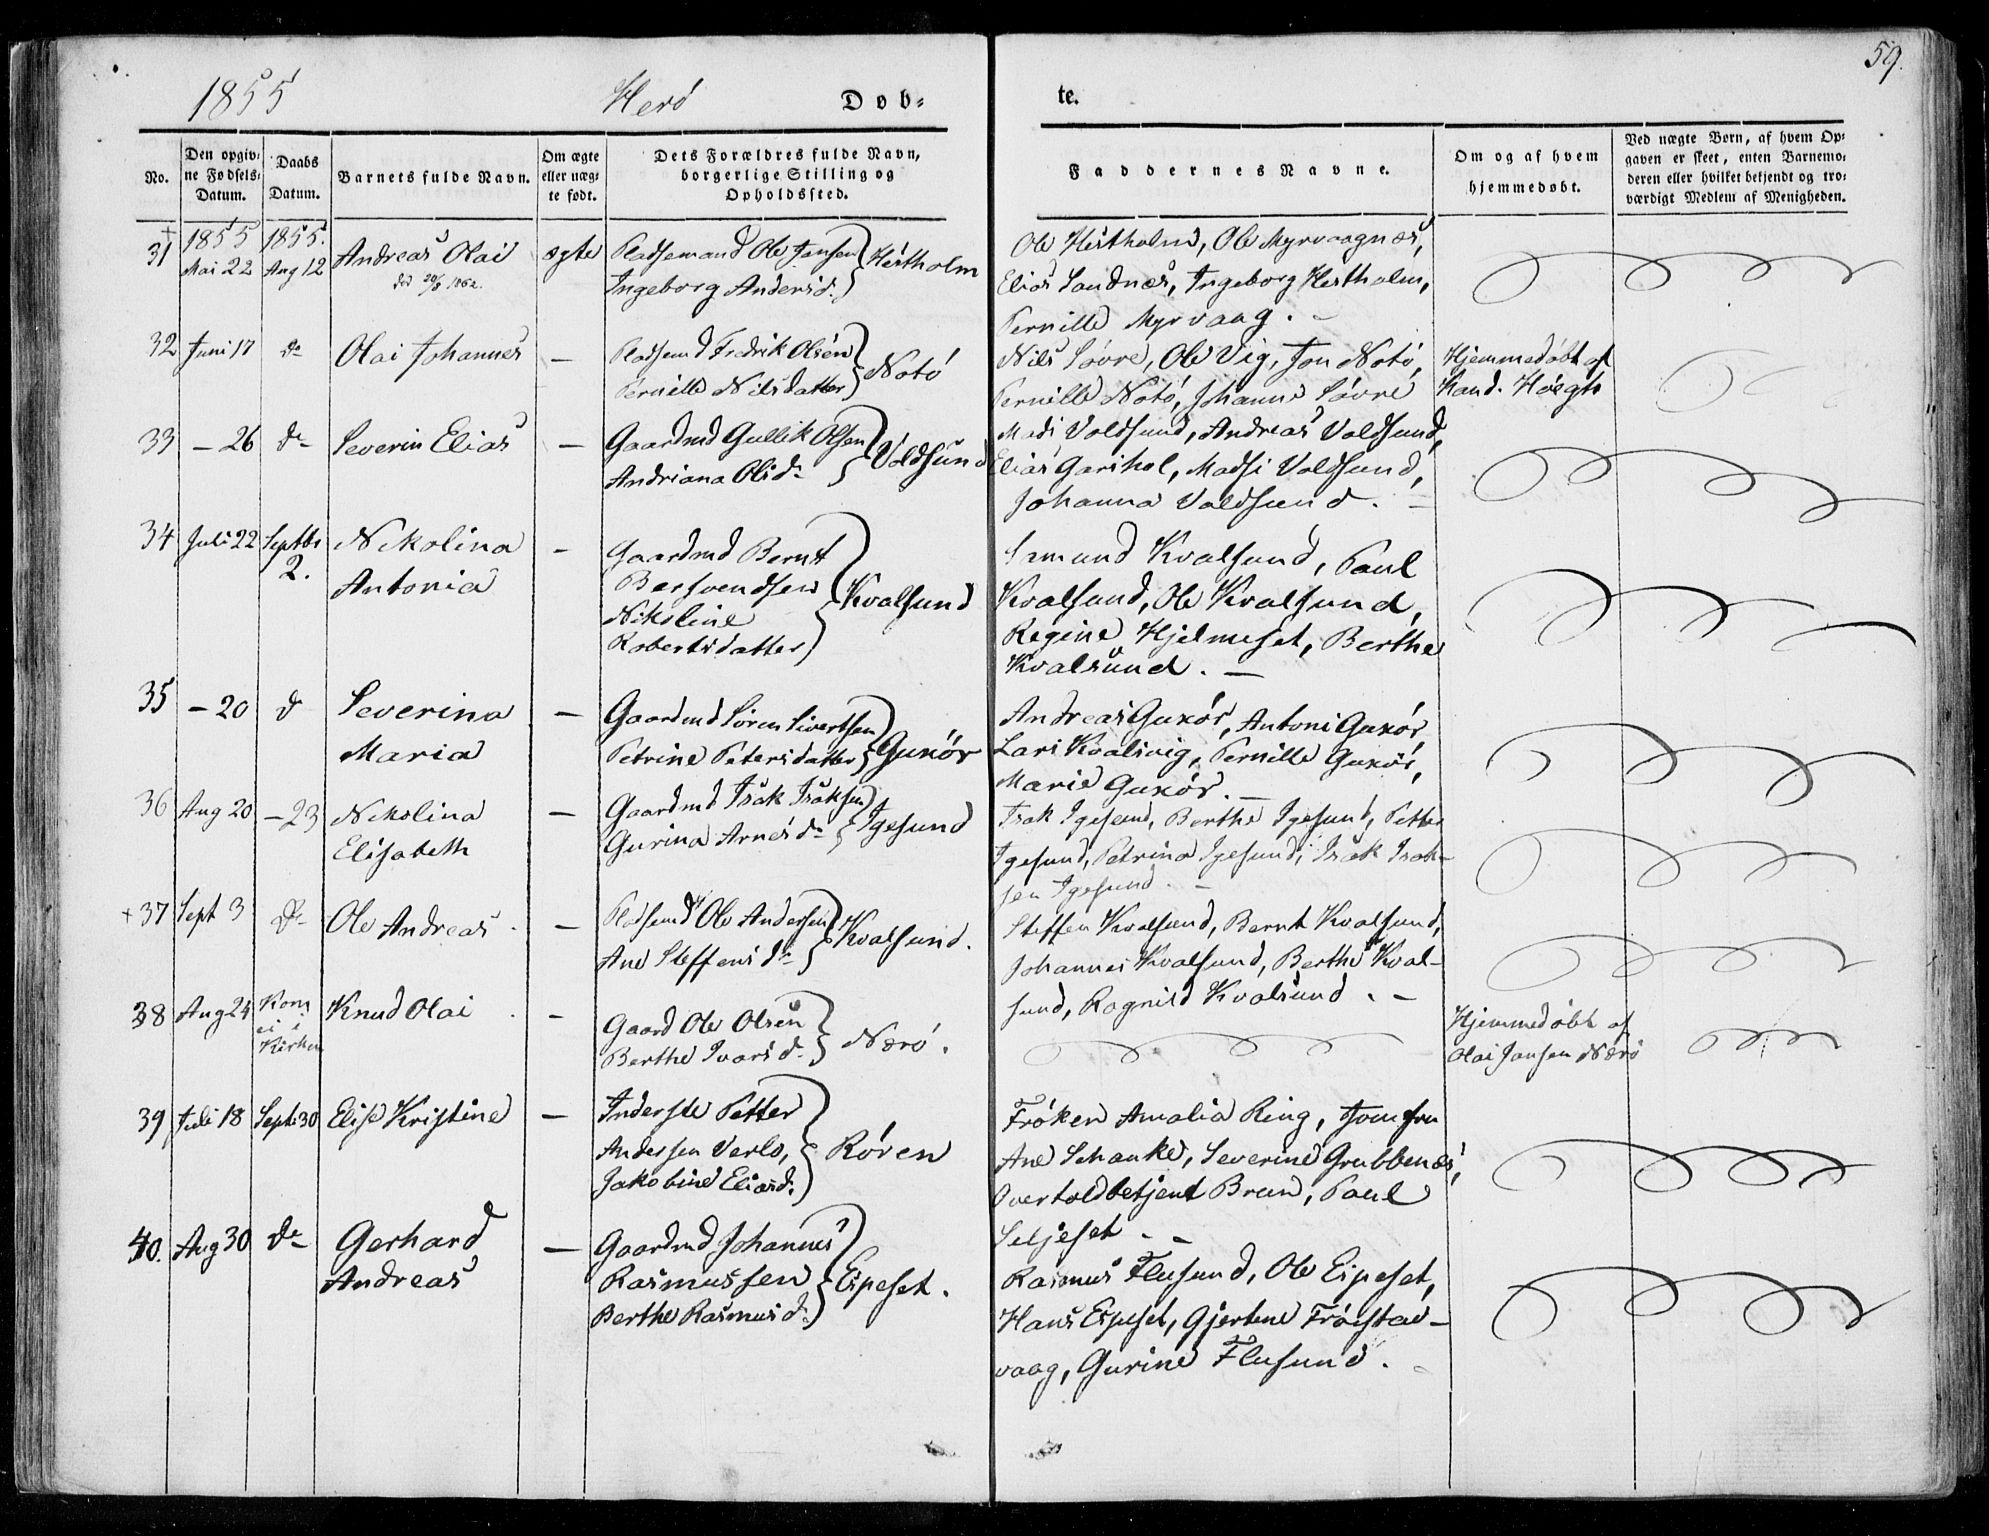 59.
1855 Herö Døb-
te.
No.
Den opgiv-
ne Fødsels-
Datum.
Daabs
Datum.
Barnets fulde Navn.
Om ægte
eller uæg-
te født.
Dets Forældres fulde Navn,
borgerlige Stilling og
Opholdssted.
Faddernes Navne.
Om og af hvem
hjemmedøbt.
Ved uægte Børn, af hvem Op-
gaven er skeet, enten Barnemo-
deren eller hvilket bekjendt og tro-
værdigt Medlem af Menigheden.
+
31
1855
Mai 22
1855.
Aug 12
Andreas Olai
død 20/8 1862.
ægte
Pladsemand Ole Jansen
Ingeborg Andersd.
Hestholm
Ole Hestholm, Ole Myrvaagnæs,
Elias Sandnæs, Ingeborg Hestholm,
Pernille Myrvaag. -
32 Juni 17 do
Olai Johannes
-
Pladsemd Fredrik Olsen
Pernille Nilsdatter
Notö
Nils Søvre, Ole Vig, Jon Notö,
Pernille Notö, Johanne Søvre
Hjemmedøbt af
Kand. Höegh
33 - 26 do
Severin Elias
-
Gaardmd Gullik Olsen
Andriana Olsd.
Voldsund
Mads Voldsund, Andreas Voldsund,
Elias Garshol, Madsi Voldsund,
Johanna Voldsund. -
34 Juli 22 Septbr
2.
Nikolina
Antonia
-
Gaardmd Bernt
Bersvendsen
Nikoline
Robertsdatter
Kvalsund
Kvalsund, Paul
Kvalsund, Ole Kvalsund,
Regine Hjelmeset, Berthe
Kvalsund. -
35 - 20 d
Severina
Maria
-
Gaardmd Sören Sivertsen
Petrine Petersdatter
Guxör
Andreas Guxör, Antoni Guxör,
Lars Kvalsvig, Pernille Guxör,
Marie Guxör. -
36 Aug 20 - 23
Nikolina
Elisabeth
-
Gaardmd Isak Isaksen
Gurina Arnesd.
Igesund
Isak Igesund, Berthe Igesund, Petter
Igesund, Petrina Igesund, Isak Isak-
sen Igesund. -
+ 37 Sept 3 do
Ole Andreas.
-
Pladsemd Ole Andersen
Ane Steffensd.
Kvalsund.
Steffen Kvalsund, Bernt Kvalsund,
Johannes Kvalsund, Berthe Kval-
sund, Ragnild Kvalsund. -
38 Aug 24
Kom
ei i
Kirken
Knud Olai.
-
Gaard Ole Olsen
Berthe Ivarsd.
Nærö.
Hjemmedöbt af
Olai Jansen Nærö
39 Juli 18 Sept 30
Elise Kristine
-
Inderste Petter
Andersen Verlo,
Jakobine Eliasd.
Rören
Fröken Amalia Ring, Jomfru
Ane Schanke, Severine Grubbenæs,
Overtoldbetjent Brun, Paul
Seljeset. -
40. Aug 30 do
Gerhard
Andreas
-
Gaardmd Johannes
Rasmussen
Berthe Rasmusd.
Eipeset.
Rasmus Flusund, Ole Eipeset,
Hans Eipeset, Gjertine Fröistad-
vaag, Gurine Flusund.